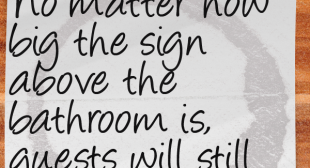 No matter how
big the sign
above the
bathroom is,
guests will still